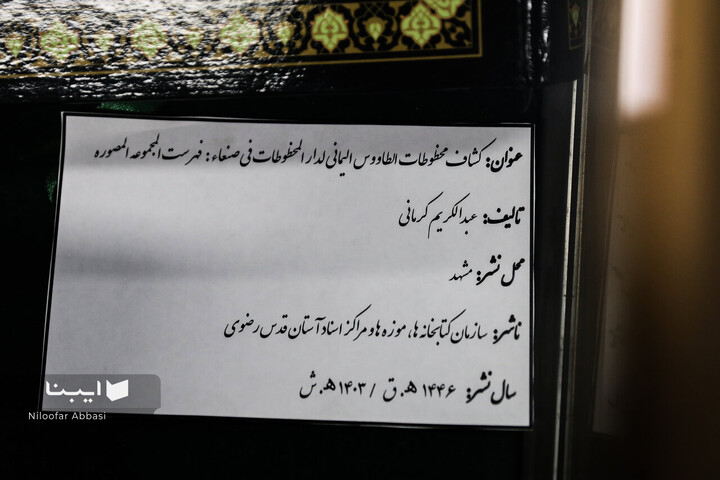 عنوان: کشاف مخطوطات الطاووس الیمانی لدار المخطوطات فی صنعاء: فهرست المجموعه المصوره
تالیف: عبدالکریم کرمانی
محل نشر: مشهد
ناشر: سازمان کتابخانه ها، موزه ها و مراکز اسناد آستان قدس رضوی
سال نشر: ۱۴۴۶ ه.ق / ۱۴۰۳ ه.ش
ایبنا
Niloofar Abbasi